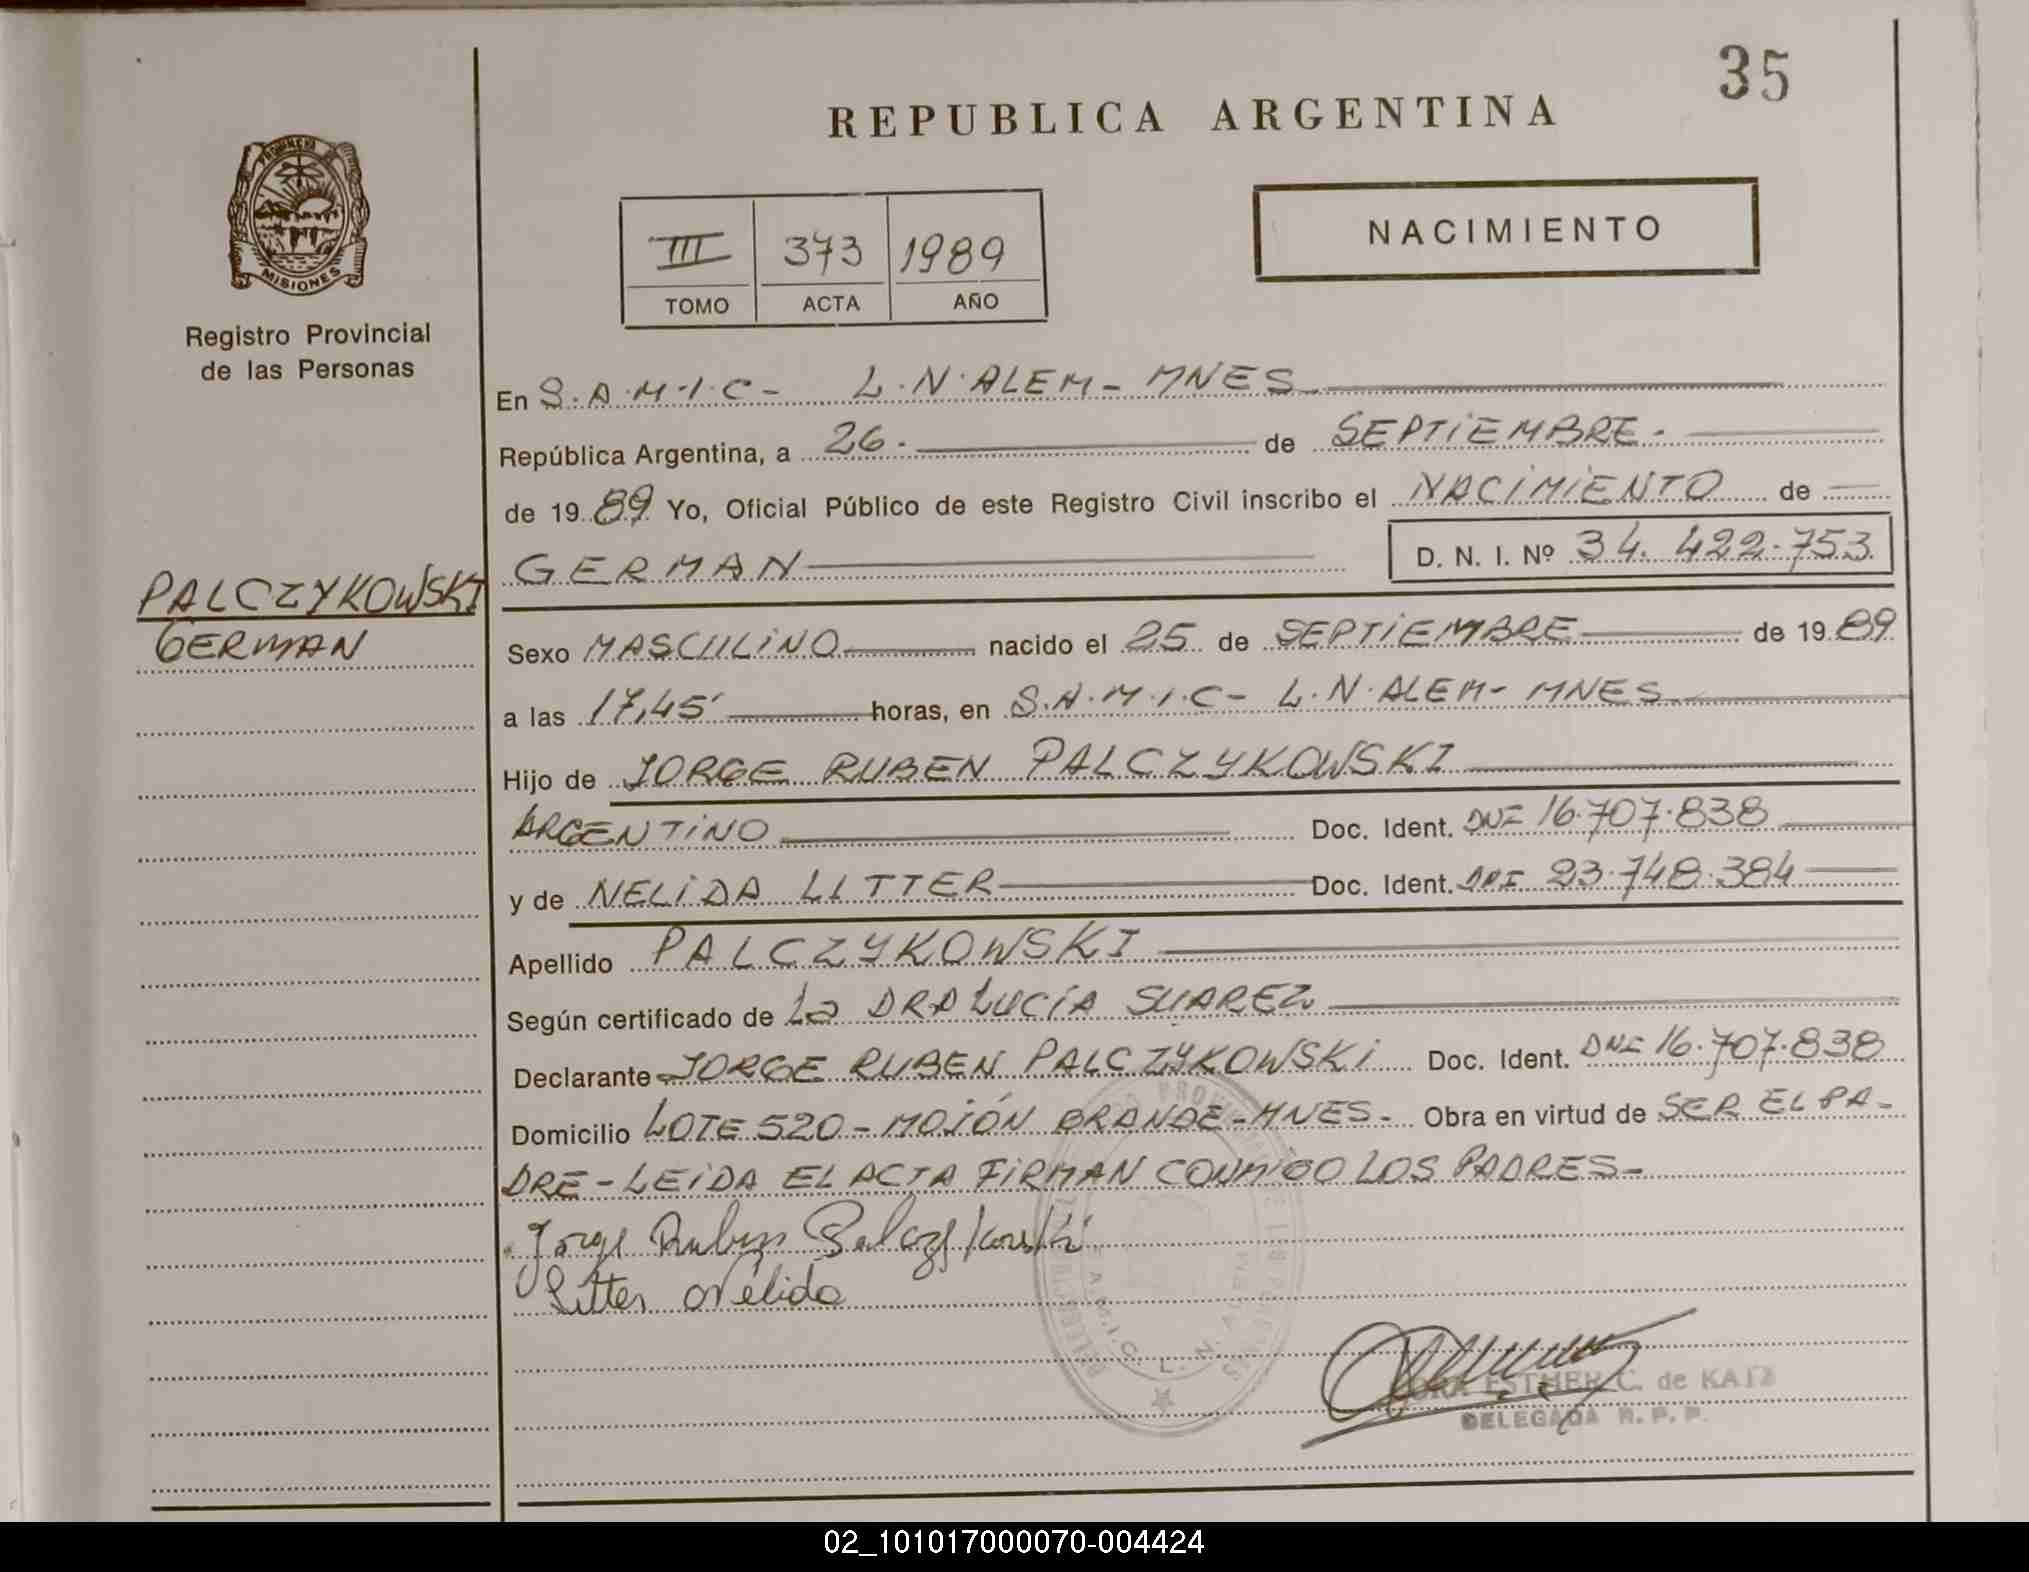 35
REPUBLICA ARGENTINA
PROVINCIA DE
MISIONES
Registro Provincial
de las Personas
NACIMIENTO
III 373 1989
TOMO ACTA AÑO
En S.A.M.I.C- L.N.ALEM- MNES
República Argentina, a 26. de SEPTIEMBRE.
de 1989 Yo, Oficial Público de este Registro Civil inscribo el NACIMIENTO de
GERMAN D. N. I. Nº 34.422.753
PALCZYKOWSKI
GERMAN
Sexo MASCULINO nacido el 25 de SEPTIEMBRE de 1989
a las 17,45' horas, en S.A.M.I.C- L.N.ALEM- MNES
Hijo de JORGE RUBEN PALCZYKOWSKI
ARGENTINO Doc. Ident. DNI 16.707.838
y de NELIDA LITTER Doc. Ident. DNI 23.748.384
Apellido PALCZYKOWSKI
Según certificado de La DRA LUCÍA SUAREZ
Declarante JORGE RUBEN PALCZYKOWSKI Doc. Ident. DNI 16.707.838
Domicilio LOTE 520 - MOJÓN GRANDE - MNES- Obra en virtud de SER EL PA-
DRE - LEIDA EL ACTA FIRMAN CONMIGO LOS PADRES-
Jorge Ruben Palczykowski
Litter Nélida
S.A.M.I.C. L. N. ALEM
ESTHER C. de KATZ
DELEGADA R. P. P.
02_101017000070-004424